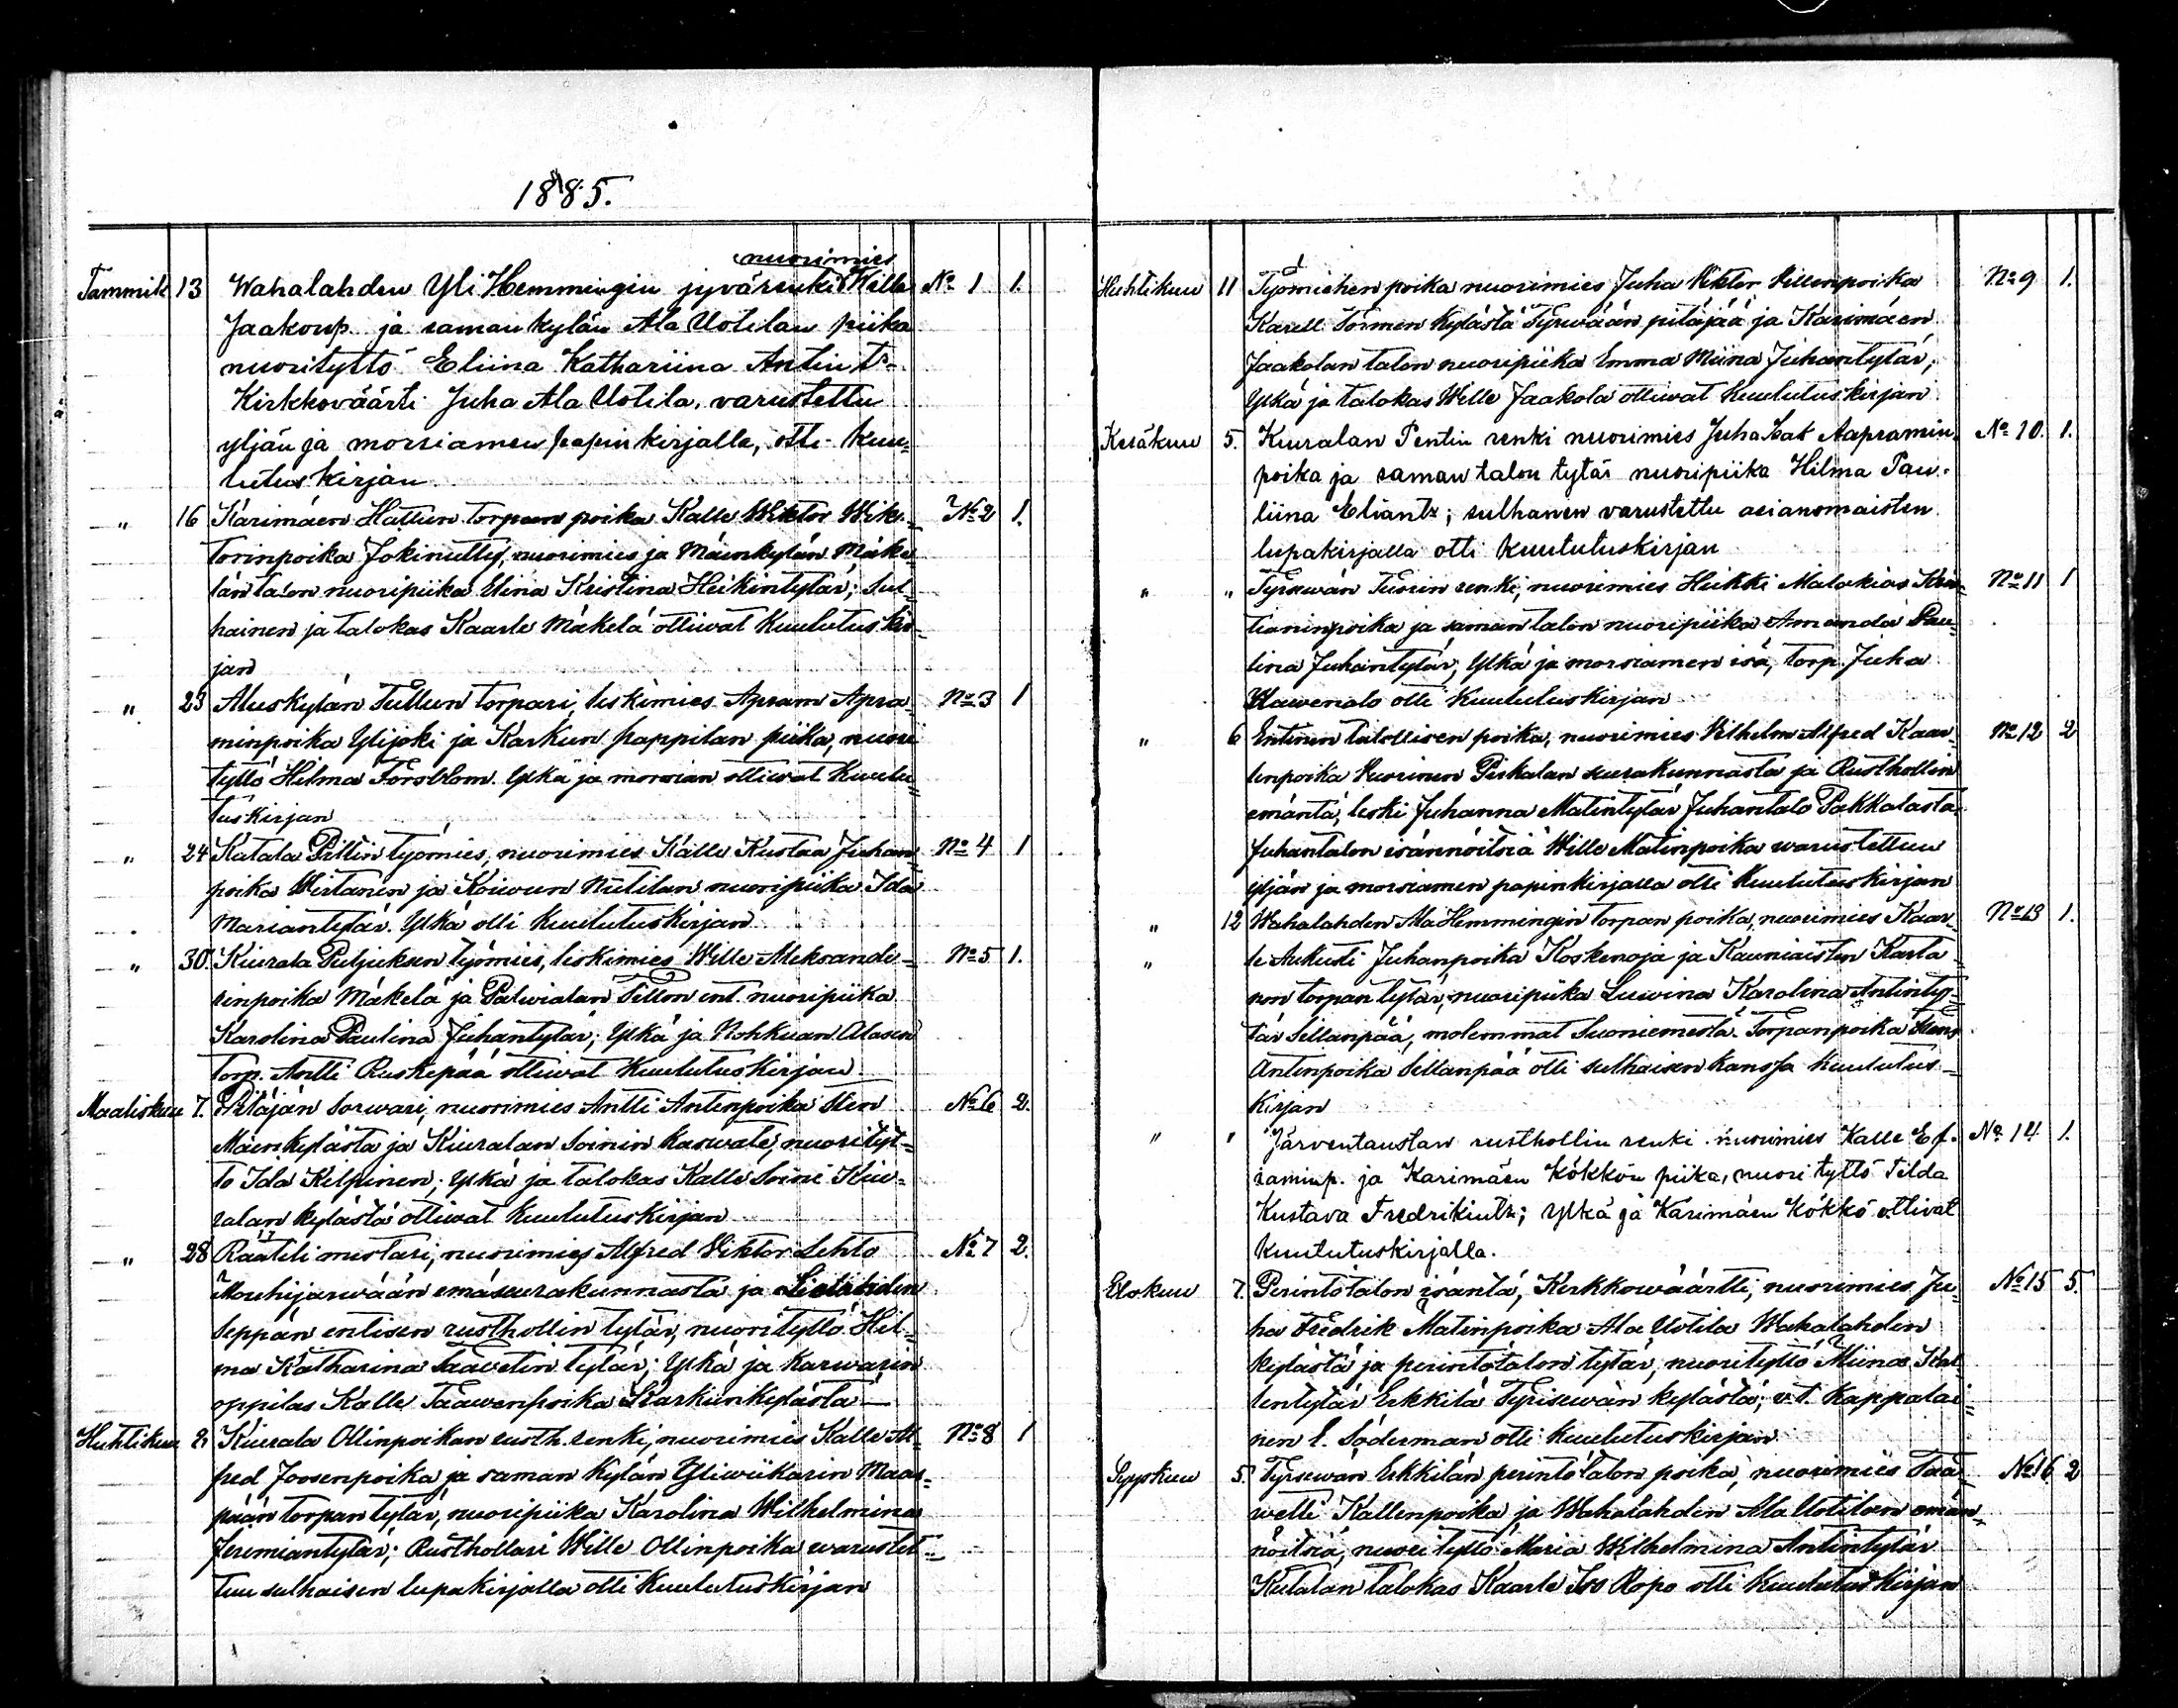 1885.
nuorimies
Tammik 13 Wahalahden Yli Hemmingin jyvärenki Wille No 1 1.
Jaakonp. ja saman kylän Ala Uotilan piika
nuorityttö Eliina Kathariina Antin t:
Kirkkoväärti Juha Ala Uotila, varustettu
yljän ja morsiamen papinkirjalla, otti kuu=
lutuskirjan
" 16 Karimäen Hattun torpan poika Kalle Wiktor Wik=
No 2 1.
torinpoika Jokinutty, nuorimies ja Mäenkylän Mäke
län talon nuoripiika Elina Kristina Heikintytär; Sul=
hainen ja talokas Kaarle Mäkelä ottiwat Kuulutuskir=
jan
" 23 Aluskylän Tullun torpari, leskimies Apram Apra= No 3 1
minpoika Ylijoki ja Karkun pappilan piika, nuori
tyttö Hilma Forsblom. Ylkä ja morsian ottiwat Kuulu=
tuskirjan
" 24 Kutala Prittin työmies, nuorimies Kalle Kustaa Juhan No 4 1
poika Wirtanen ja Koiwun Nutilan nuoripiika Ida
Mariantytär. Ylkä otti Kuulutuskirjan
" 30. Kiurala Puljuksen työmies, leskimies Wille Aleksande= No 5 1.
rinpoika Mäkelä ja Palwialan Tillon ent. nuoripiika
Karolina Paulina Juhantytär; Ylkä ja Nohkuan Alasen
torp. Antti Ruskepää ottiwat Kuulutuskirjan
Maaliskuu 7. Pitäjän sorwari, nuorimies Antti Antinpoika Sten No 6 2.
Mäenkylästä ja Kiuralan Soinin kaswate, nuorityt=
tö Ida Kelpinen; Ylkä ja talokas Kalle Soini Kiu=
ralan kylästä ottiwat Kuulutuskirjan
" 28 Räätäli mestari, nuorimies Alfred Viktor Lehto No 7 2.
Mouhijarwään emäseurakunnasta ja
Seppän entisen rusthollin tytär, nuorityttö Hil=
ma Katharina Taavetin tytär; Ylkä ja Karwarin
oppilas Kalle Taawenpoika Karkunkylästä —
Huhtikuu 2. Kiurala Ollinpoikan rusth. renki, nuorimies Kalle Al= No 8 1
fred Joosenpoika ja saman kylän Yliwiikarin Maas=
pään torpan tytär, nuoripiika Karolina Wilhelmina
Jeremiantytär; Rusthollari Wille Ollinpoika warustet=
tuu sulhaisen lupakirjalla otti Kuulutuskirjan
Huhtikuu 11 Työmiehen poika nuorimies Juha Viktor Villenpoika No 9 1.
Karell Törmen kylästä Tyrwään pitäjää ja Karimäen
Jaakolan talon nuoripiika Emma Miina Juhantytär;
Ylkä ja talokas Wille Jaakola ottiwat Kuulutuskirjan
Kesäkuu 5. Kiuralan Pentin renki nuorimies Juha Isat Aapramin No 10. 1.
poika ja saman talon tytär nuoripiika Hilma Pau=
liina Eliantr; sulhanen varustettu asianomaisten
lupakirjalla otti kuulutuskirjan
" " Tyrsewän Tuorin renki, nuorimies Heikki Malakias Kris= No 11 1
tianinpoika ja saman talon nuoripiika Amanda Pau=
lina Juhantytär; Ylkä ja morsiamen isä, torp. Juha
otti Kuulutuskirjan
" 6 Entinen talollisen poika, nuorimies Vilhelm Alfred Kaar= No 12 2
lenpoika Vuorinen Pirkalan seurakunnasta ja Rusthollin
emäntä, leski Juhanna Matintytär Juhantalo Pakkalasta.
Juhantalon isännöitsiä Wille Matinpoika warustettuu
yljän ja morsiamen papinkirjalla otti Kuulutuskirjan
" 12 Wahalahden Ala Hemmingin torpan poika, nuorimies Kaar= No 13 1.
" le Aukusti Juhanpoika Koskenoja ja Kauniaisten Karta
non torpan tytär, nuoripiika Luwina Karolina Antintyt=
tär Sillanpää, molemmat Suoniemestä. Torpanpoika
Antinpoika Sillanpää otti sulhaisen kanssa Kuulutus=
Kirjan
" " Järventaustan rusthollin renki nuorimies Kalle Ef= No 14 1.
raminp. ja Karimäen Kökkön piika, nuori tyttö Tilda
Kustava Fredrikintr; Ylkä ja Karimäen Kökkö ottivat
kuulutuskirjalla.
Elokuu 7. Perintötalon isäntä, Kirkkowäärtti, nuorimies Ju= No 15 5.
ha Fredrik Matinpoika Ala Uotila Wahalahden
kylästä ja perintötalon tytär, nuorityttö Miina Kal
lentytär Erkkilä Tyrisewän kylästä; v. t. kappalai=
nen E. Söderman otti Kuulutuskirjan
Syyskuu 5. Tyrsewän Erkkilän perintötalon poika, nuorimies Taa= No 16 2
wetti Kallenpoika ja Wahalahden Ala Uotilan emän=
nöitsiä, nuori tyttö Maria Wilhelmina Antintytär
Kutalan talokas Kaarle Iso Ropo otti Kuulutuskirjan